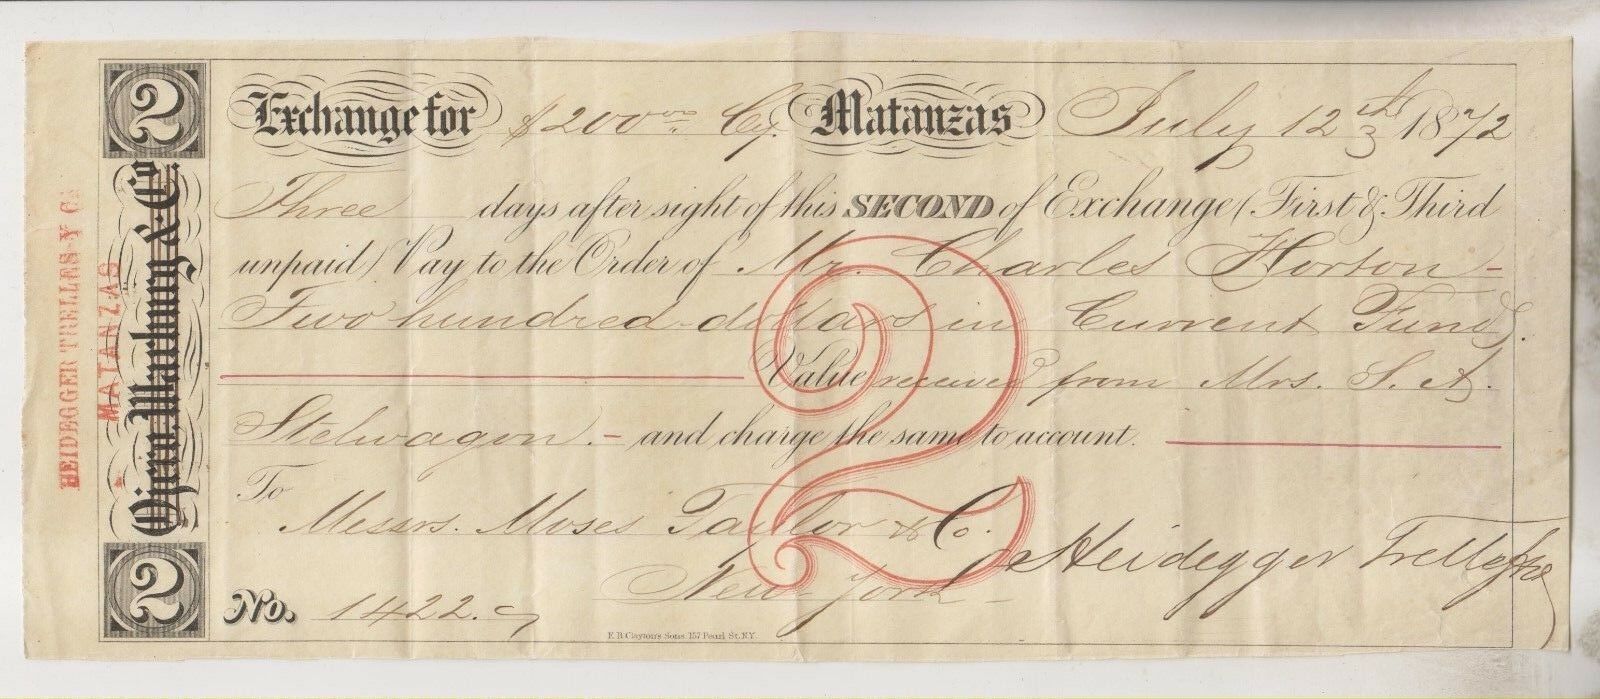 2
Ojero, Marburg & Co.
2
HEIDEGGER TRELLES Y Ca
MATANZAS
Exchange for $200 00/.. Cy. Matanzas July 12th 1872
Three days after sight of this SECOND of Exchange (First & Third
unpaid) Pay to the Order of Mr. Charles Horton -
Two hundred dollars in Current Funds.
Value received from Mrs. S. A.
Stelwagon. - and charge the same to account.
To
Messrs. Moses Taylor & Co.
New-York -
Heidegger Trelles & Co
No. 1422.
E. B. Clayton's Sons. 157 Pearl St. N.Y.
2